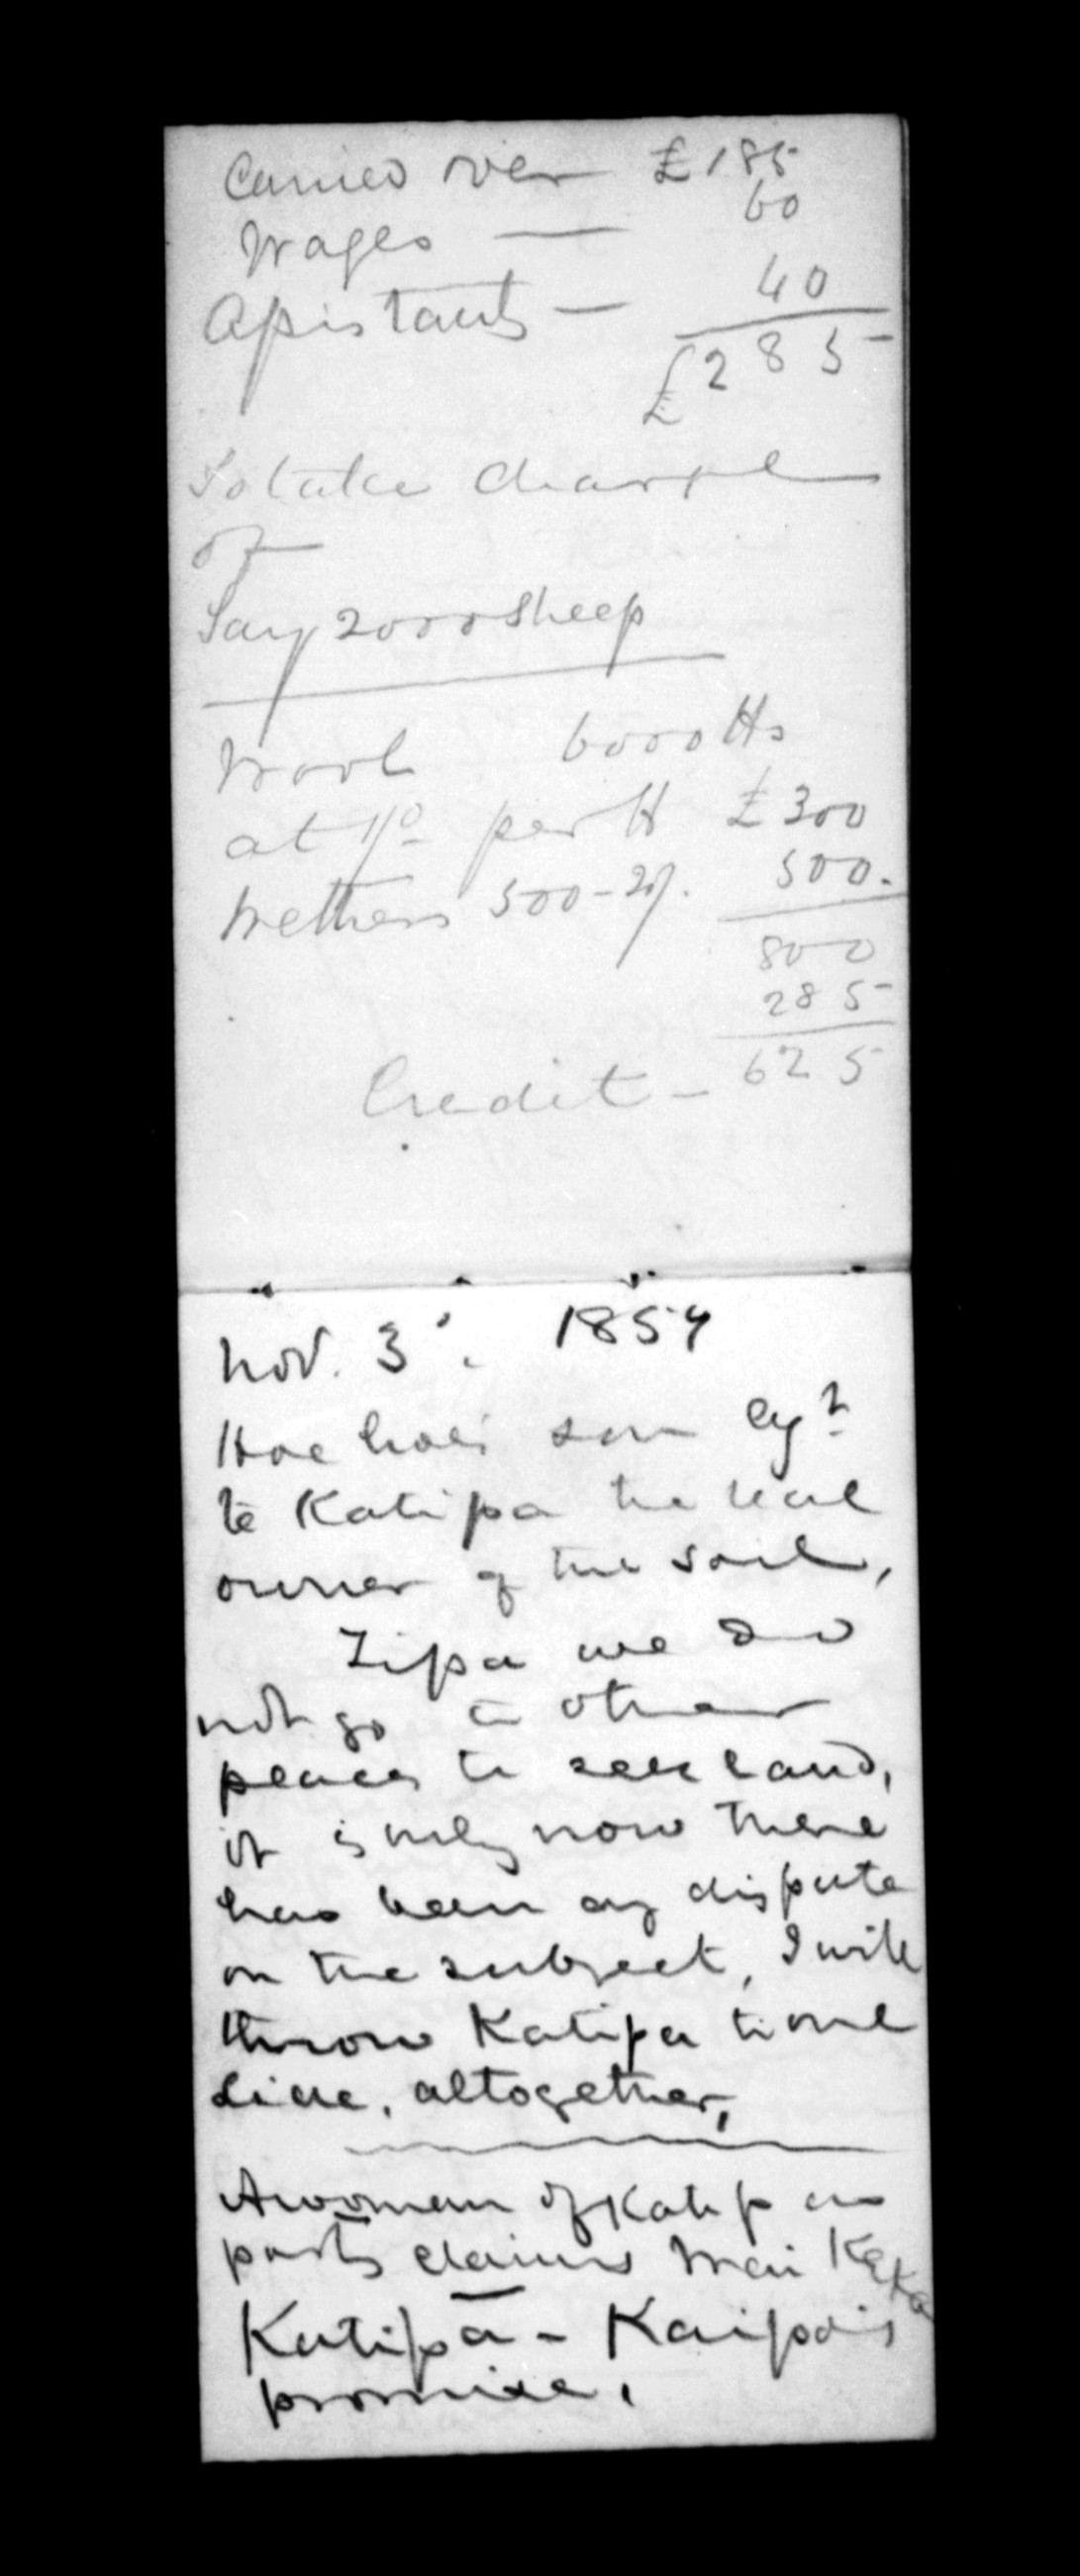 Carried over £185
Wages — 60
Assistants — 40
£285
To take charge
of
Say 2000 sheep
Wool 6000 lbs
at 1/0 per lb £300
Wethers 500 - 20/. 500.
800
285
Credit - 625
Nov. 3d. 1854
to Katipa the real
owner of the soil,
Tipa we do
not go to other
places to seek land,
it is only now there
has been any dispute
on the subject, I will
throw Katipa to one
side, altogether,
A woman of Katipas
party claims Wai Keke
Katipa - Kaipois
promise.